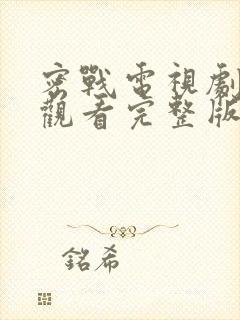 密戰電視劇
觀看完整版
銘希